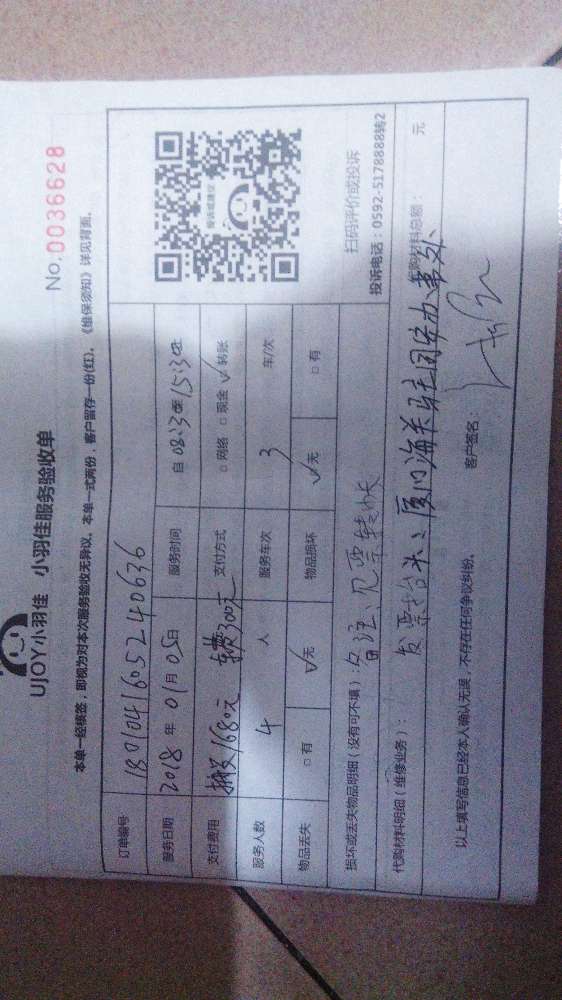 UJOY小羽佳 小羽佳服务验收单
No.0036628
本单一经核签，即视为对本次服务验收无异议，本单一式两份，客户留存一份(红)。《维保须知》详见背面。
订单编号 180104160524063 6
服务日期 2018年01月05日 服务时间 自08:30至15:30
支付费用 搬父1680元 车费300元 支付方式 □网络 □现金 ☑转账
服务人数 4人 服务车次 3 车/次
物品丢失 □有 ☑无 物品损坏 ☑无 □有
扫码评价或投诉
投诉电话：0592-5178888转2
损坏或丢失物品明细（没有可不填） 备注：见票转帐
代购材料明细（维修业务）： 代购材料总额： 元
发票抬头：厦门海关驻同安办事处
以上填写信息已经本人确认无误，不存在任何争议纠纷。 客户签名：